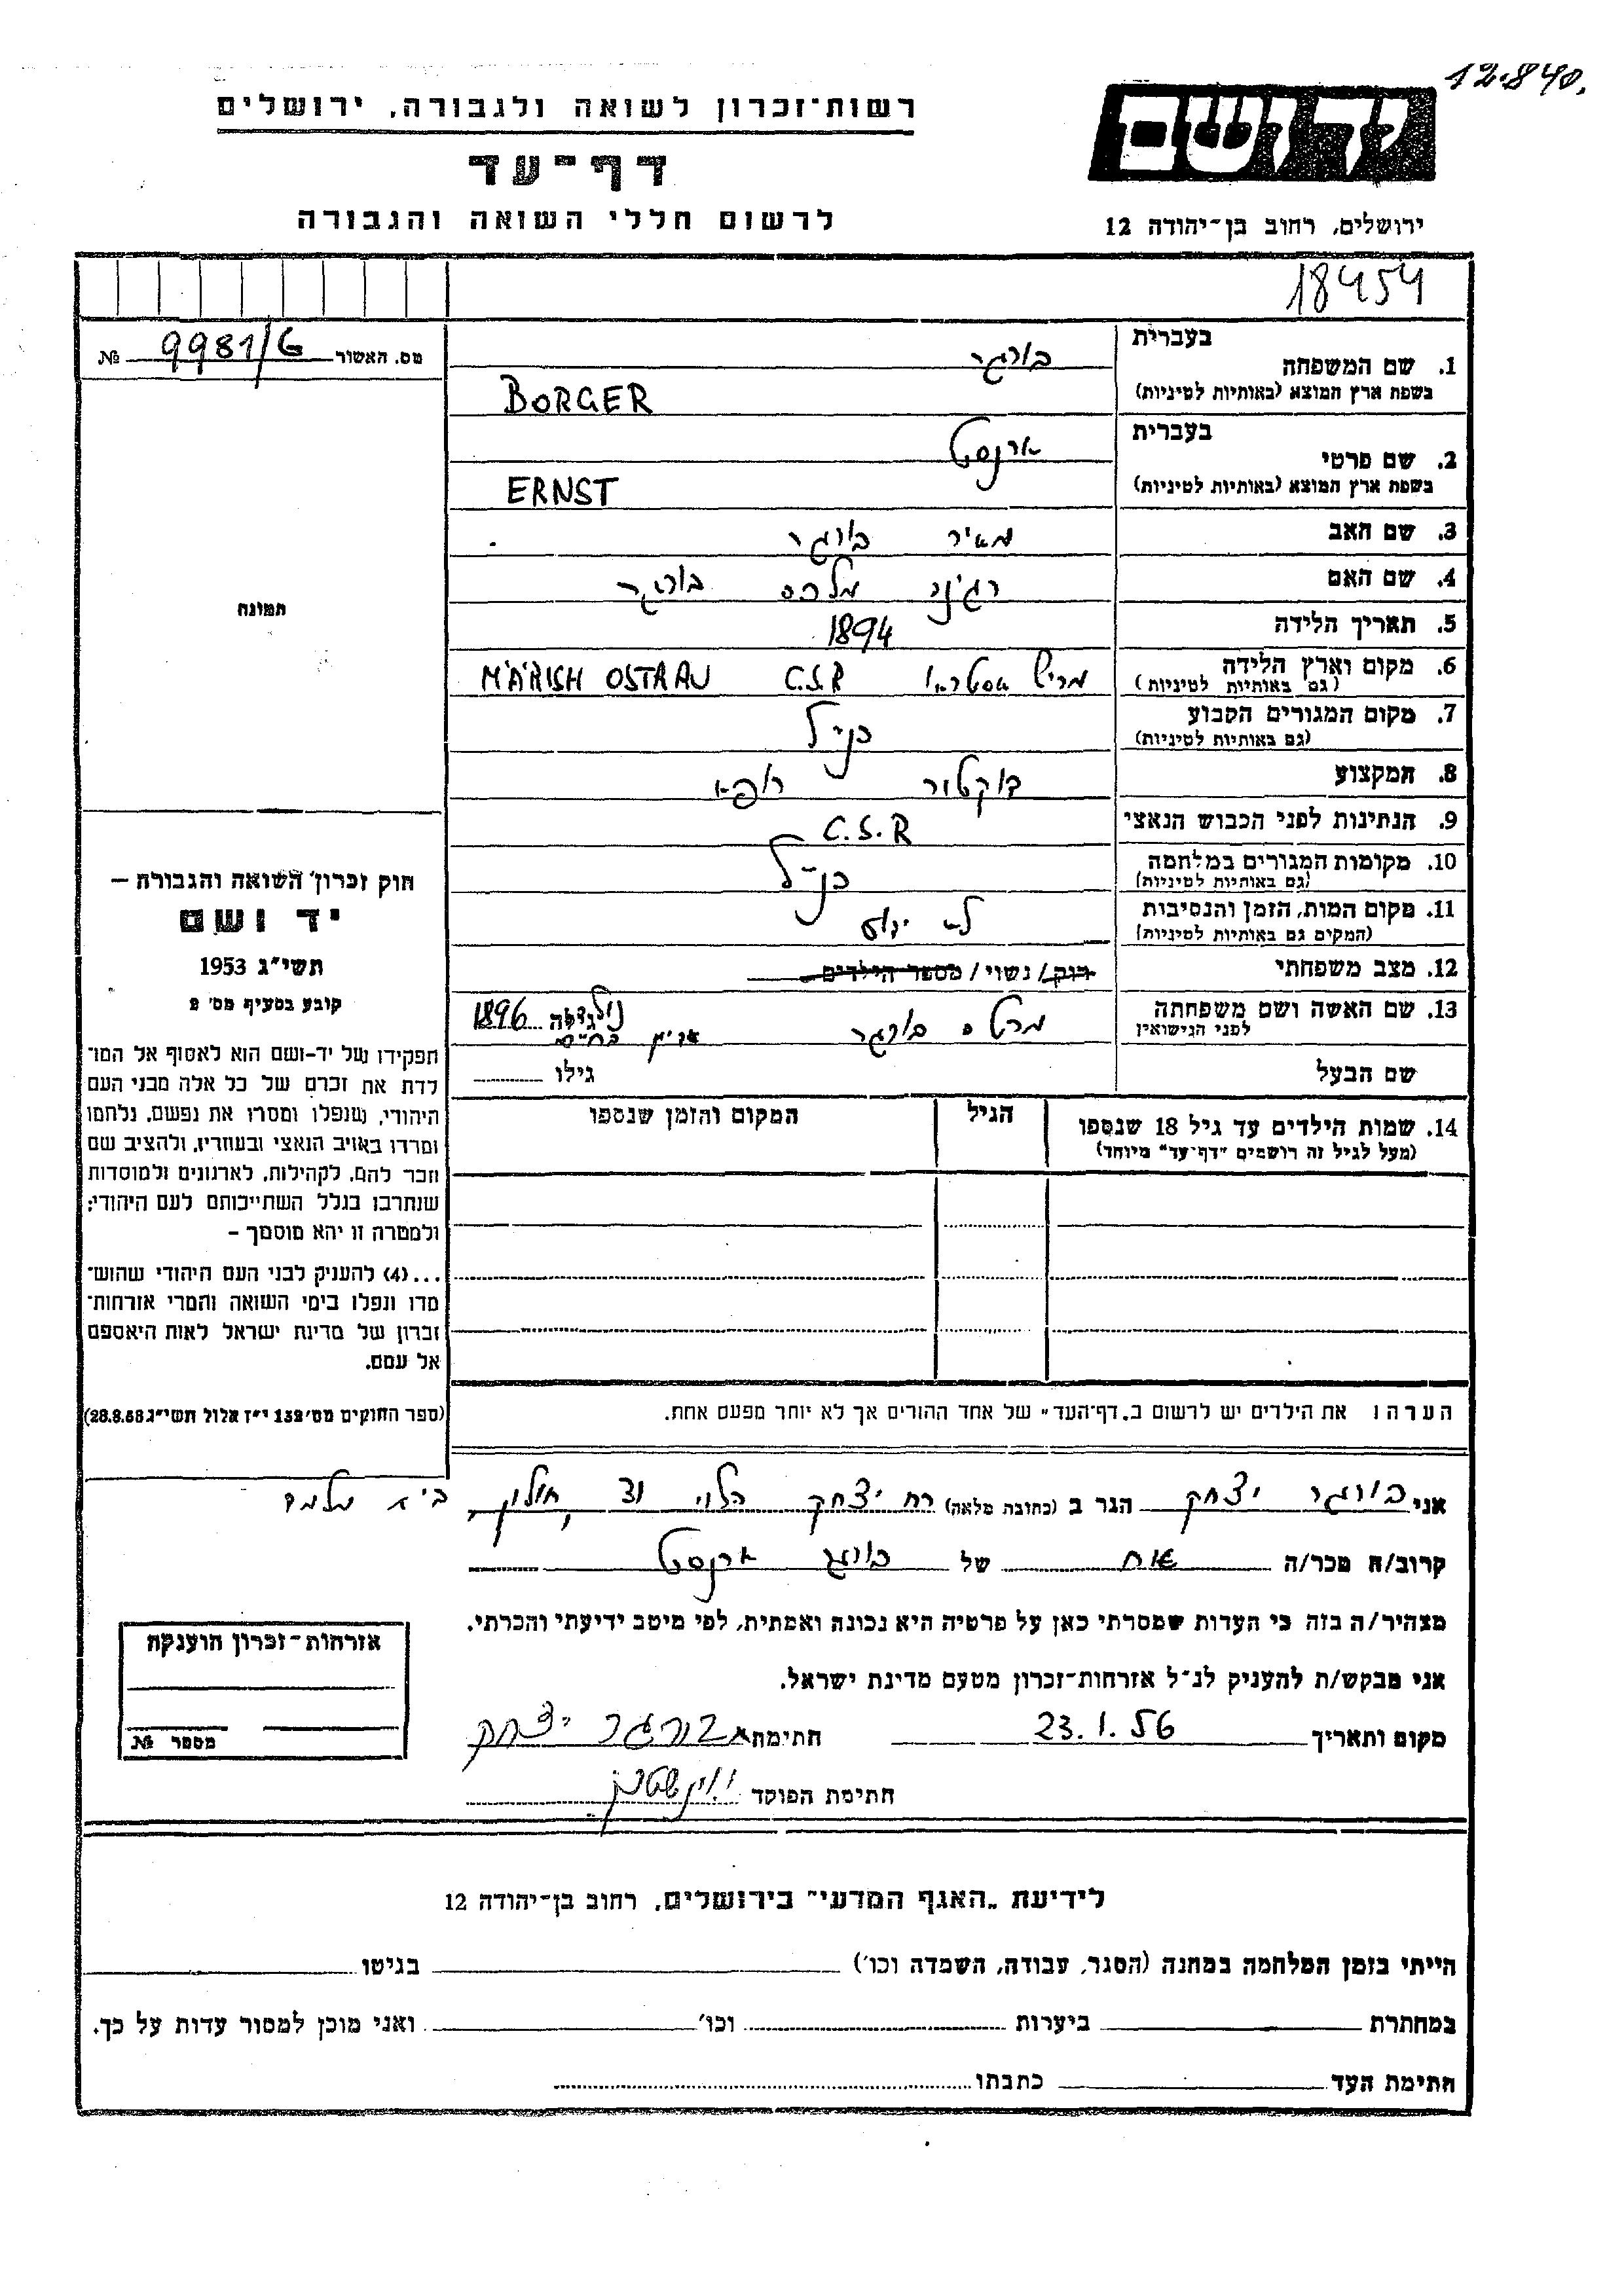 12.840.
רשות־זכרון לשואה ולגבורה, ירושלים
דף־עד
לרשום חללי השואה והגבורה
יד ושם
ירושלים, רחוב בן־יהודה 12
18454
מס. האשור 9981/G №
בעברית
1. שם המשפחה בורגר
בשפת ארץ המוצא (באותיות לטיניות) BORGER
בעברית
2. שם פרטי ארנסט
בשפת ארץ המוצא (באותיות לטיניות) ERNST
3. שם האב מאיר בורגר
4. שם האם רגינה בורגר
5. תאריך הלידה 1894
6. מקום וארץ הלידה מריש אסטראו C.S.R MÄRISH OSTRAU
(גם באותיות לטיניות)
7. מקום המגורים הקבוע כנ״ל
(גם באותיות לטיניות)
8. המקצוע דוקטור רופא
9. הנתינות לפני הכבוש הנאצי C.S.R
10. מקומות המגורים במלחמה כנ״ל
(גם באותיות לטיניות)
11. מקום המות, הזמן והנסיבות לא ידוע
(המקום גם באותיות לטיניות)
12. מצב משפחתי רווק / נשוי / מספר הילדים
13. שם האשה ושם משפחתה מרטה בורגר נולדה 1896
לפני הנישואין איננה בחיים
שם הבעל גילו
14. שמות הילדים עד גיל 18 שנספו הגיל המקום והזמן שנספו
(מעל לגיל זה רושמים "דף־עד" מיוחד)
תמונה
חוק זכרון השואה והגבורה —
יד ושם
תשי״ג 1953
קובע בסעיף מס׳ 2
תפקידו של יד־ושם הוא לאסוף אל המו־
לדת את זכרם של כל אלה מבני העם
היהודי, שנפלו ומסרו את נפשם, נלחמו
ומרדו באויב הנאצי ובעוזריו, ולהציב שם
וזכר להם, לקהילות, לארגונים ולמוסדות
שנחרבו בגלל השתייכותם לעם היהודי;
ולמטרה זו יהא מוסמך —
...(4) להעניק לבני העם היהודי שהוש־
מדו ונפלו בימי השואה והמרי אזרחות־
זכרון של מדינת ישראל לאות היאספם
אל עמם.
(ספר החוקים מס׳ 132 י״ז אלול תשי״ג 28.8.53)
הערה: את הילדים יש לרשום ב„דף־העד״ של אחד ההורים אך לא יותר מפעם אחת.
אני בורגר יצחק הגר ב (כתובת מלאה) רח יצחק הלוי חולון,
קרוב/ה מכר/ה אח של בורגר ארנסט
מצהיר/ה בזה כי העדות שמסרתי כאן על פרטיה היא נכונה ואמתית, לפי מיטב ידיעתי והכרתי.
אני מבקש/ת להעניק לנ״ל אזרחות־זכרון מטעם מדינת ישראל.
מקום ותאריך 23.1.56 חתימה בורגר יצחק
חתימת הפוקד
אזרחות־זכרון הוענקה
מספר №
לידיעת „האגף המדעי״ בירושלים, רחוב בן־יהודה 12
הייתי בזמן המלחמה במחנה (הסגר, עבודה, השמדה וכו׳) בגיטו
במחתרת ביערות וכו׳ ואני מוכן למסור עדות על כך.
חתימת העד כתבתו